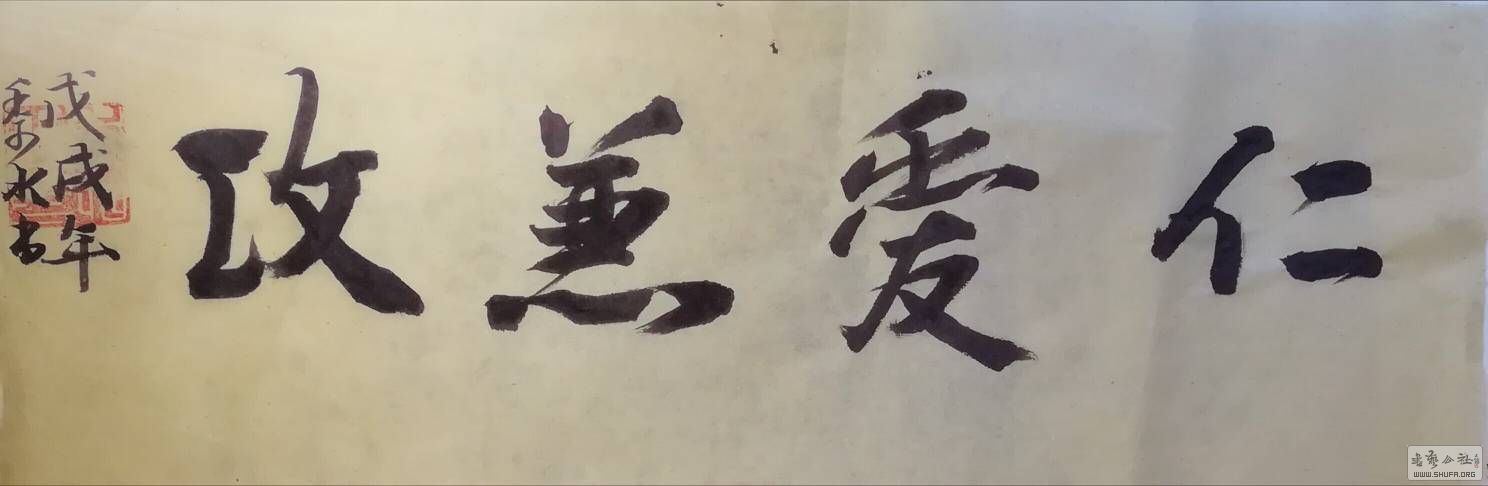 仁爱兼攻
戊戌年
水书
书艺公社
WWW.SHUFA.ORG